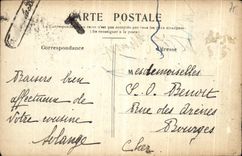 CARTE POSTALE
Correspondance
Adresse
Baisers bien
affectueux de
votre cousine
Solange
Mesdemoiselles
Benoit
Rue des Arènes
Bourges
Cher